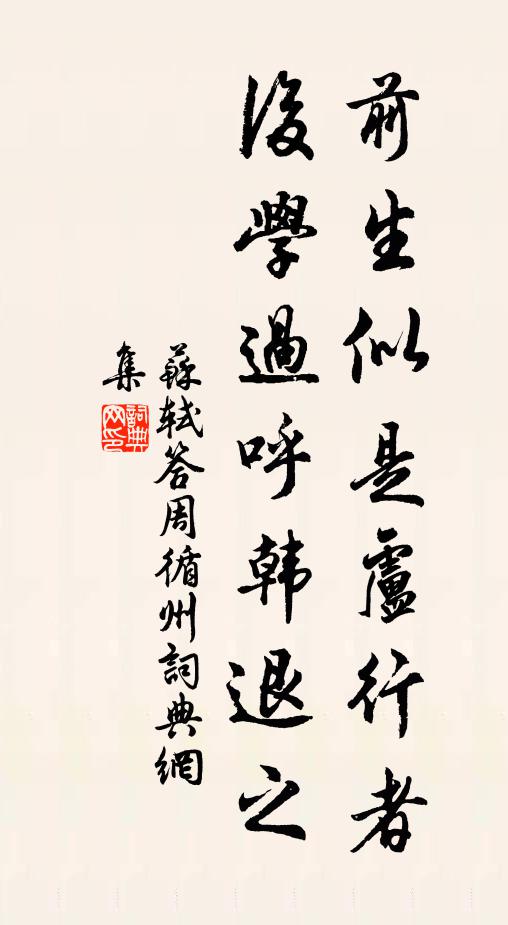 前生似是盧行者
後學過呼韩退之
蘇轼答周循州詞典網
集
詞典
网印